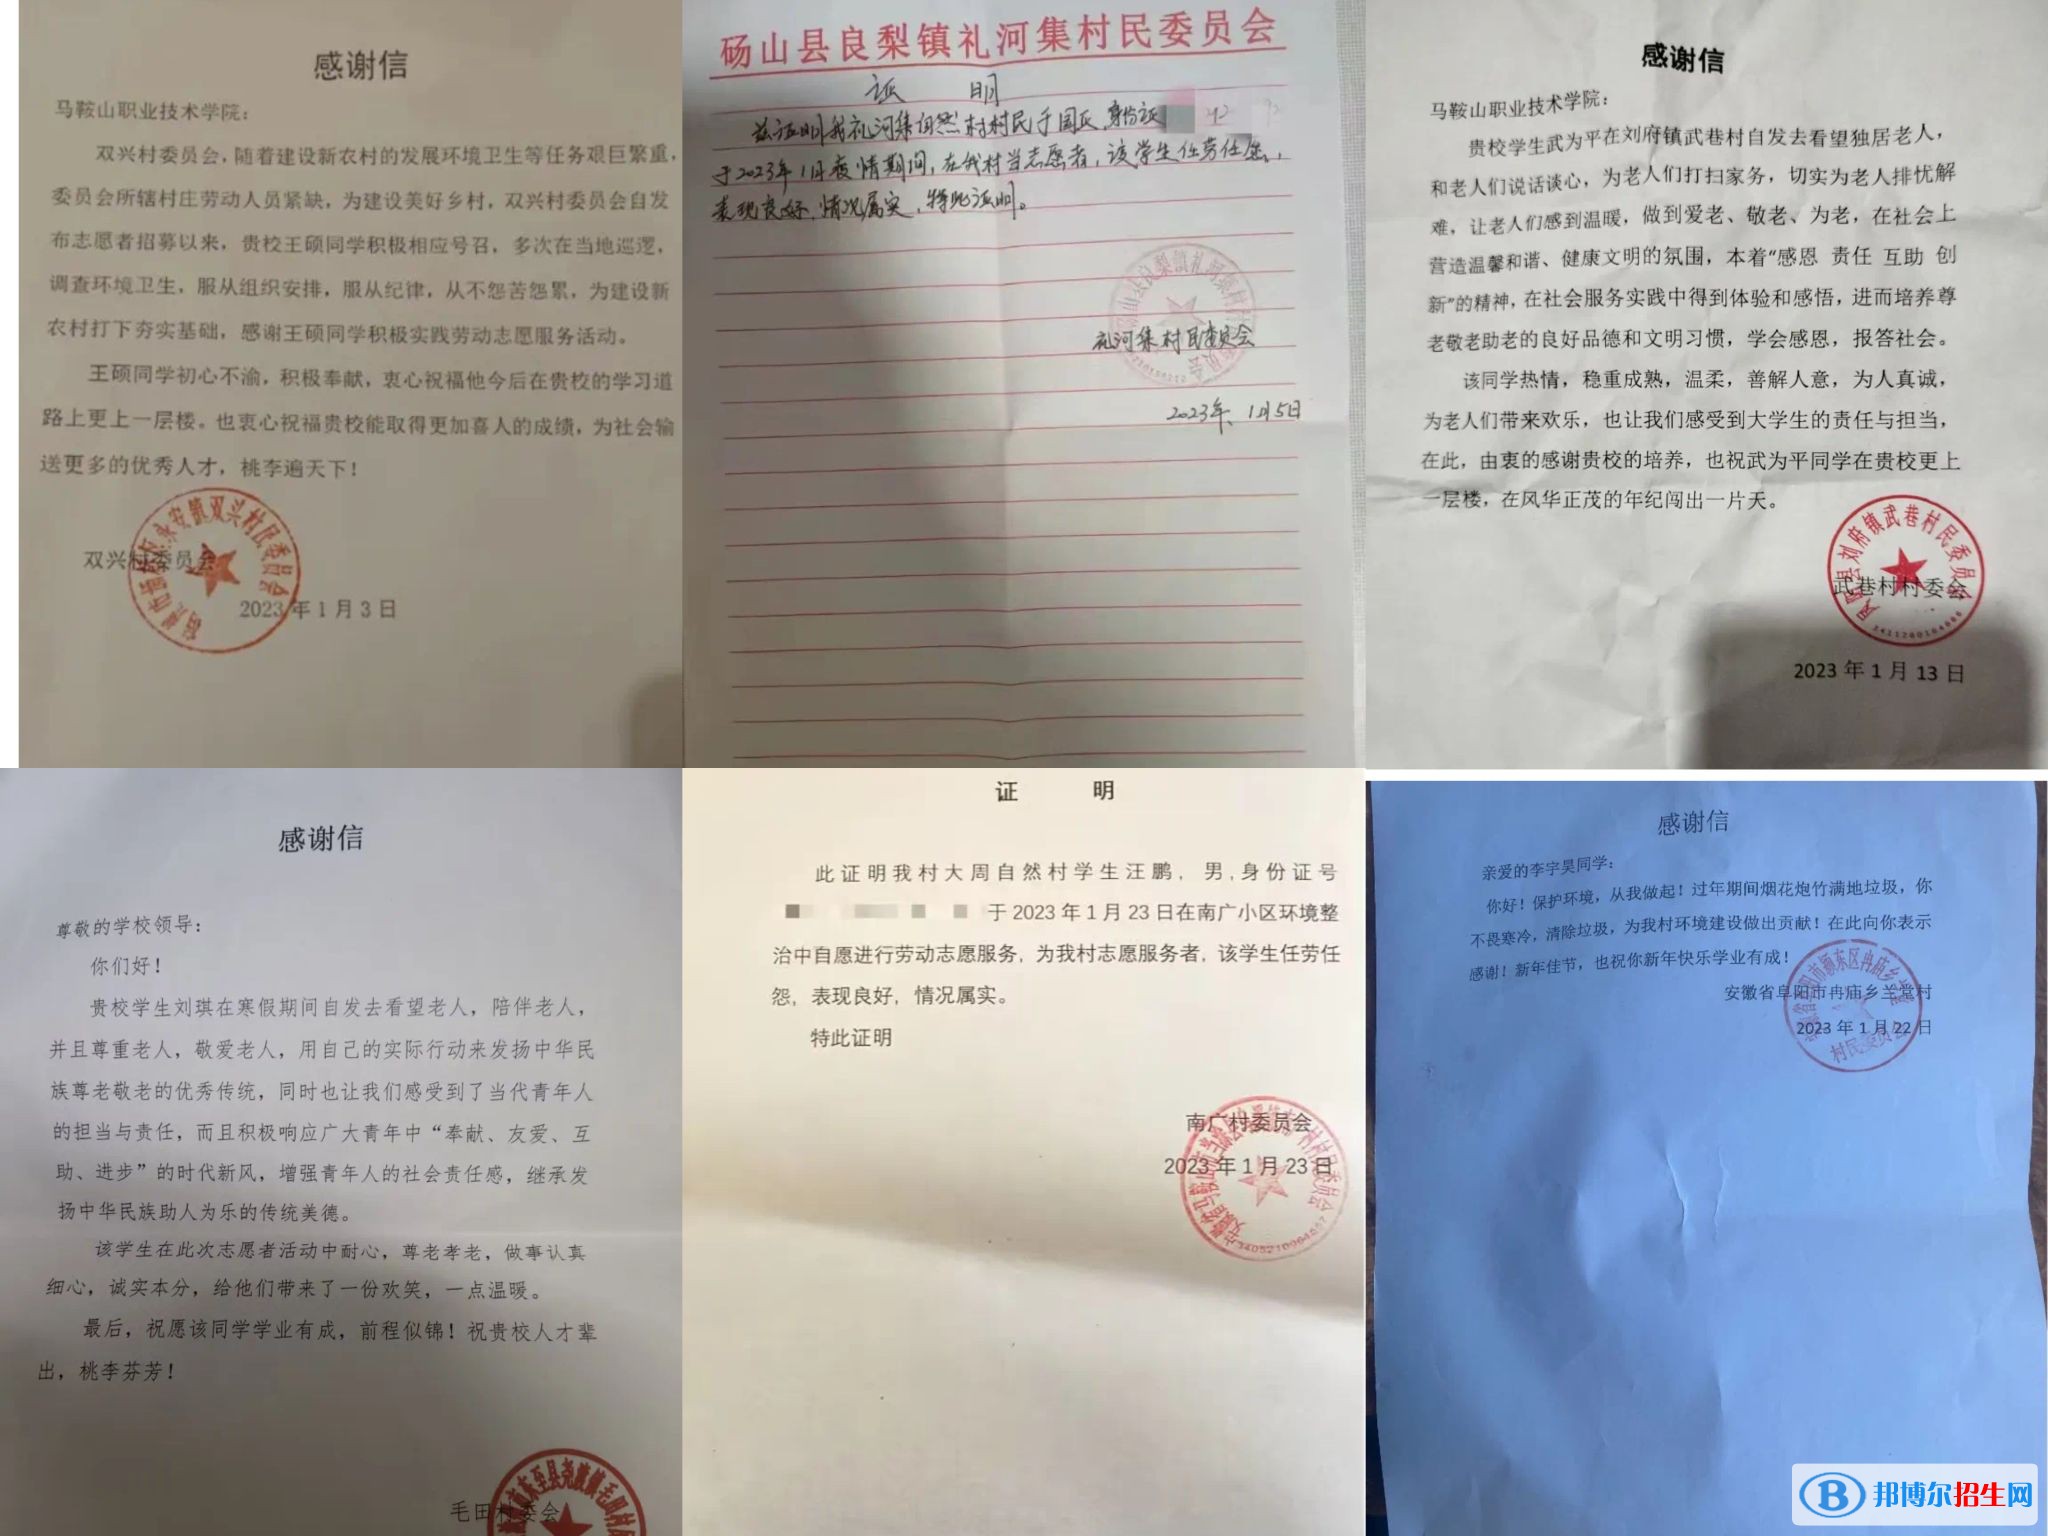 感谢信
马鞍山职业技术学院：
双兴村委员会，随着建设新农村的发展环境卫生等任务艰巨繁重，
委员会所辖村庄劳动人员紧缺，为建设美好乡村，双兴村委员会自发
布志愿者招募以来，贵校王硕同学积极相应号召，多次在当地巡逻，
调查环境卫生，服从组织安排，服从纪律，从不怨苦怨累，为建设新
农村打下夯实基础，感谢王硕同学积极实践劳动志愿服务活动。
王硕同学初心不渝，积极奉献，衷心祝福他今后在贵校的学习道
路上更上一层楼。也衷心祝福贵校能取得更加喜人的成绩，为社会输
送更多的优秀人才，桃李遍天下！
双兴村委员会
2023 年 1 月 3 日
砀山县良梨镇礼河集村民委员会
证 明
兹证明我礼河集自然村村民于国正，身份证
于2023年1月疫情期间，在我村当志愿者，该学生任劳任怨，
表现良好，情况属实，特此证明。
礼河集村民委员会
2023年1月5日
感谢信
马鞍山职业技术学院：
贵校学生武为平在刘府镇武巷村自发去看望独居老人，
和老人们说话谈心，为老人们打扫家务，切实为老人排忧解
难，让老人们感到温暖，做到爱老、敬老、为老，在社会上
营造温馨和谐、健康文明的氛围，本着“感恩 责任 互助 创
新”的精神，在社会服务实践中得到体验和感悟，进而培养尊
老敬老助老的良好品德和文明习惯，学会感恩，报答社会。
该同学热情，稳重成熟，温柔，善解人意，为人真诚，
为老人们带来欢乐，也让我们感受到大学生的责任与担当，
在此，由衷的感谢贵校的培养，也祝武为平同学在贵校更上
一层楼，在风华正茂的年纪闯出一片天。
武巷村村委会
2023 年 1 月 13 日
感谢信
尊敬的学校领导：
你们好！
贵校学生刘琪在寒假期间自发去看望老人，陪伴老人，
并且尊重老人，敬爱老人，用自己的实际行动来发扬中华民
族尊老敬老的优秀传统，同时也让我们感受到了当代青年人
的担当与责任，而且积极响应广大青年中“奉献、友爱、互
助、进步”的时代新风，增强青年人的社会责任感，继承发
扬中华民族助人为乐的传统美德。
该学生在此次志愿者活动中耐心，尊老孝老，做事认真
细心，诚实本分，给他们带来了一份欢笑，一点温暖。
最后，祝愿该同学学业有成，前程似锦！祝贵校人才辈
出，桃李芬芳！
毛田村委会
证 明
此证明我村大周自然村学生汪鹏，男，身份证号
于 2023 年 1 月 23 日在南广小区环境整
治中自愿进行劳动志愿服务，为我村志愿服务者，该学生任劳任
怨，表现良好，情况属实。
特此证明
南广村委员会
2023 年 1 月 23 日
感谢信
亲爱的李宇昊同学：
你好！保护环境，从我做起！过年期间烟花炮竹满地垃圾，你
不畏寒冷，清除垃圾，为我村环境建设做出贡献！在此向你表示
感谢！新年佳节，也祝你新年快乐学业有成！
安徽省阜阳市冉庙乡兰堂村
2023 年 1 月 22 日
邦博尔招生网